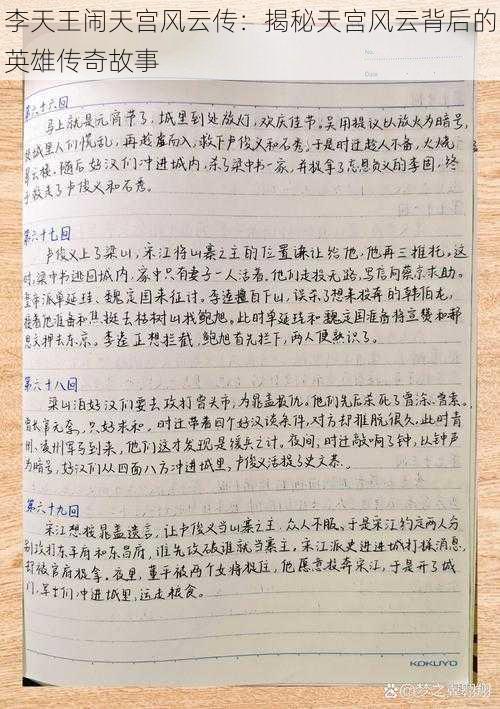 李天王闹天宫风云传：揭秘天宫风云背后的
英雄传奇故事
No.
第六十六回
马上就是元宵节了，城里到处放灯，欢庆佳节。吴用提议以放火为暗号，
城里人们慌乱，再趁虚而入，救下卢俊义和石秀，于是时迁趁人不备，火烧
翠云楼。随后好汉们冲进城内，杀了梁中书一家，并捉拿了忘恩负义的李固，终
于救走了卢俊义和石秀。
第六十七回
卢俊义上了梁山，宋江将山寨之主的位置谦让给他，他再三推托。这
时，梁中书逃回城内，家中只有妻子一人活着，他们走投无路，写信向蔡京求助。
派单廷珪、魏定国来征讨。李逵擅自下山，误杀了想来投奔的韩伯龙，
接着他准备和焦挺去枯树山找鲍旭。此时单廷珪和魏定国准备将宣赞和郝
思文押去东京。李逵正想拦截，鲍旭首先拦下，两人便熟识了。
第六十八回
梁山泊好汉们要去攻打曾头市，为晁盖报仇。他们先后杀死了曾涂、曾索。
曾长官无奈，只好求和。时迁带着四个好汉谈条件，对方却推脱很久，此时青
州、凌州军马到来，他们这才发现是缓兵之计。夜间，时迁敲响了钟，以钟声
为暗号，好汉们从四面八方冲进城里，卢俊义活捉了史文恭。
第六十九回
宋江想按晁盖遗言，让卢俊义当山寨之主，众人不服。于是宋江约定两人分
别攻打东平府和东昌府，谁先攻破谁就当寨主。宋江派史进进城打探消息，
却被官府捉拿。夜里，董平被两个女将捉住，他愿意投奔宋江，于是开了城
门，军士们冲进城里，运走粮食。
KOKUYO
百家号/梦之翼翱翔